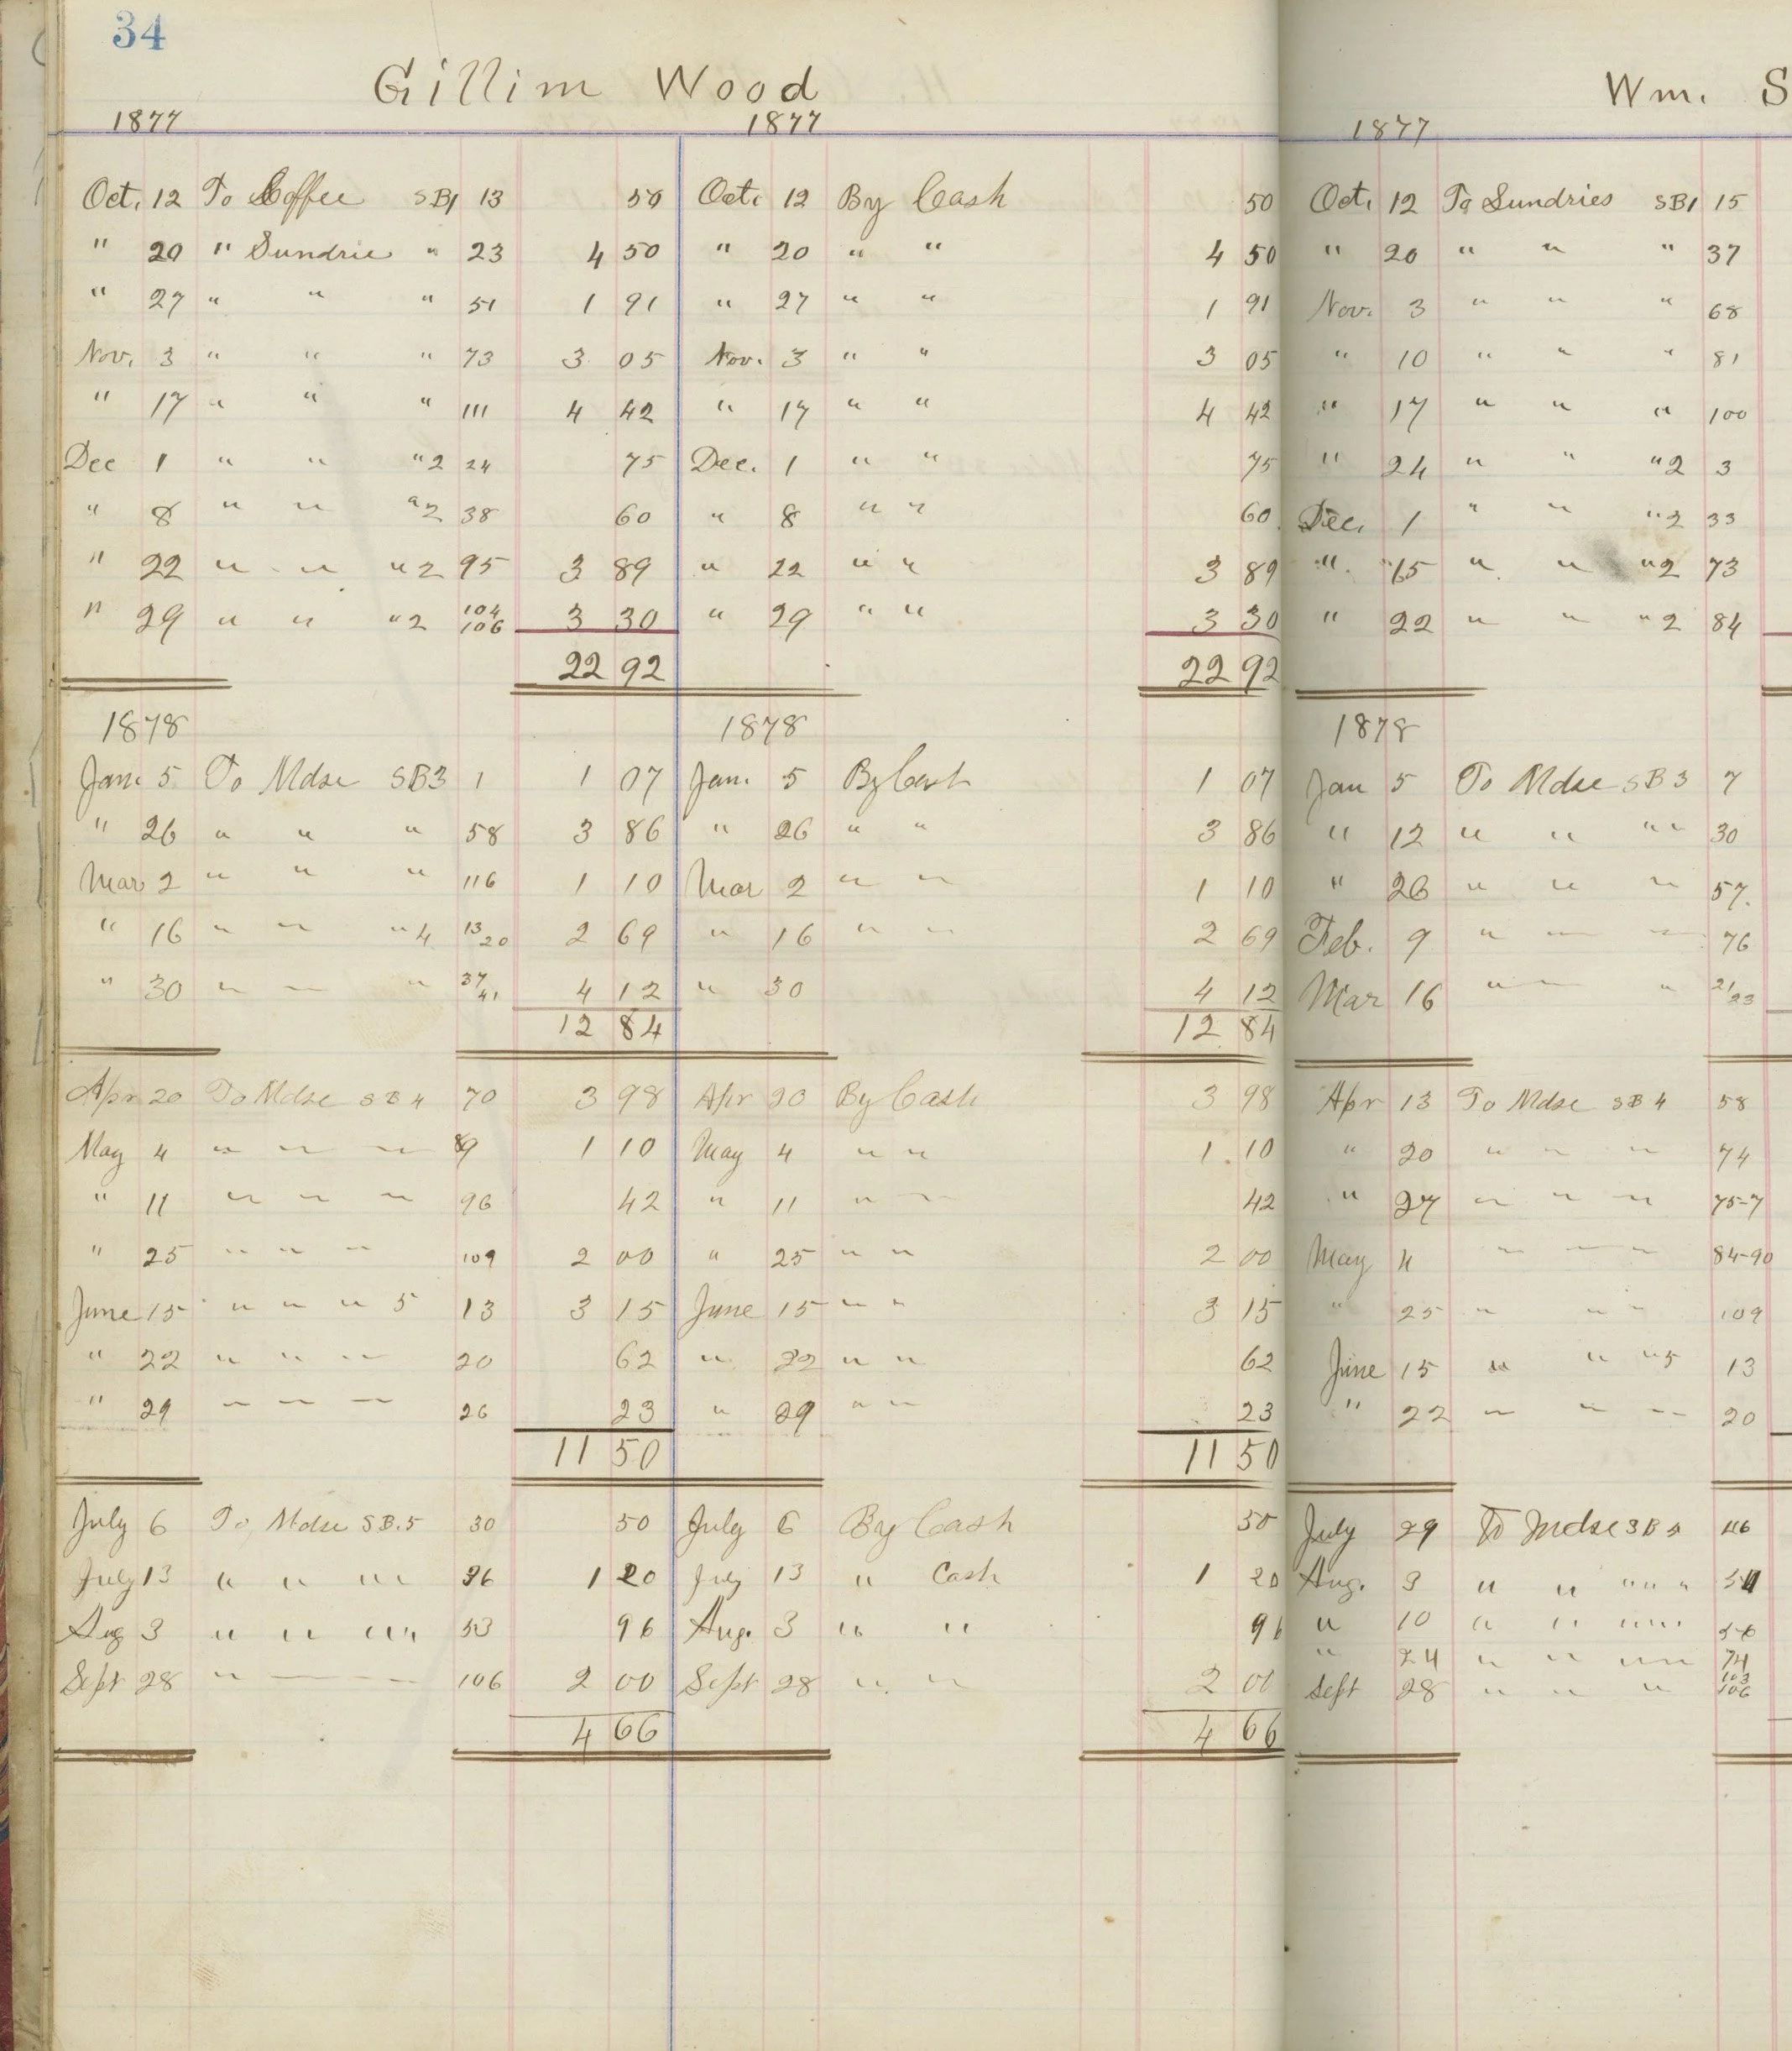 34
Gillim Wood
1877 1877
Oct. 12 To Coffee SB1 13 50 Oct. 12 By Cash 50
" 20 " Sundrie " 23 4 50 " 20 " " 4 50
" 27 " " " 51 1 91 " 27 " " 1 91
Nov. 3 " " " 73 3 05 Nov. 3 " " 3 05
" 17 " " " 111 4 42 " 17 " " 4 42
Dec 1 " " " 2 24 75 Dec. 1 " " 75
" 8 " " " 2 38 60 " 8 " " 60
" 22 " " " 2 95 3 89 " 22 " " 3 89
" 29 " " " 2 104 106 3 30 " 29 " " 3 30
22 92 22 92
1878 1878
Jan. 5 To Mdse SB3 1 1 07 Jan. 5 By Cash 1 07
" 26 " " " 58 3 86 " 26 " " 3 86
Mar 2 " " " 116 1 10 Mar 2 " " 1 10
" 16 " " " 4 13 20 2 69 " 16 " " 2 69
" 30 " " " 37 41 4 12 " 30 4 12
12 84 12 84
Apr 20 To Mdse SB 4 70 3 98 Apr 20 By Cash 3 98
May 4 " " " 89 1 10 May 4 " " 1.10
" 11 " " " 96 42 " 11 " " 42
" 25 " " " 109 2 00 " 25 " " 2 00
June 15 " " " 5 13 3 15 June 15 " " 3 15
" 22 " " " 20 62 " 22 " " 62
" 29 " " " 26 23 " 29 " " 23
11 50 11 50
July 6 To Mdse SB.5 30 50 July 6 By Cash 50
July 13 " " " " 36 1 20 July 13 " Cash 1 20
Aug 3 " " " " 53 96 Aug. 3 " " 96
Sept 28 " " " 106 2 00 Sept 28 " " 2 00
4 66 4 66
Wm. S
1877
Oct. 12 To Sundries SB1 15
" 20 " " " 37
Nov. 3 " " " 68
" 10 " " " 81
" 17 " " " 100
" 24 " " " 2 3
Dec. 1 " " " 2 33
" 15 " " " 2 73
" 22 " " " 2 84
1878
Jan 5 To Mdse SB 3 7
" 12 " " " " 30
" 26 " " " 57.
Feb. 9 " " " 76
Mar 16 " " " 21/23
Apr 13 To Mdse SB 4 58
" 20 " " " 74
" 27 " " " 75-7
May 4 " " " 84-90
" 25 " " " 109
June 15 " " " 5 13
" 22 " " " 20
July 29 To Mdse SB 5 46
Aug. 3 " " " " "
" 10 " " " " 56
" 24 " " " " 74
Sept 28 " " " 103 106